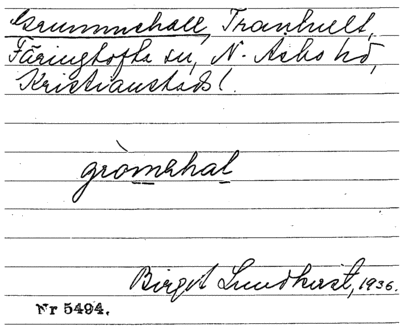 Grummehall, Tranhult,
Färingtofta sn, N. Åsbo hd,
Kristianstads l.
gròmehal
Birgit Lundkvist, 1936.
Nr 5494.